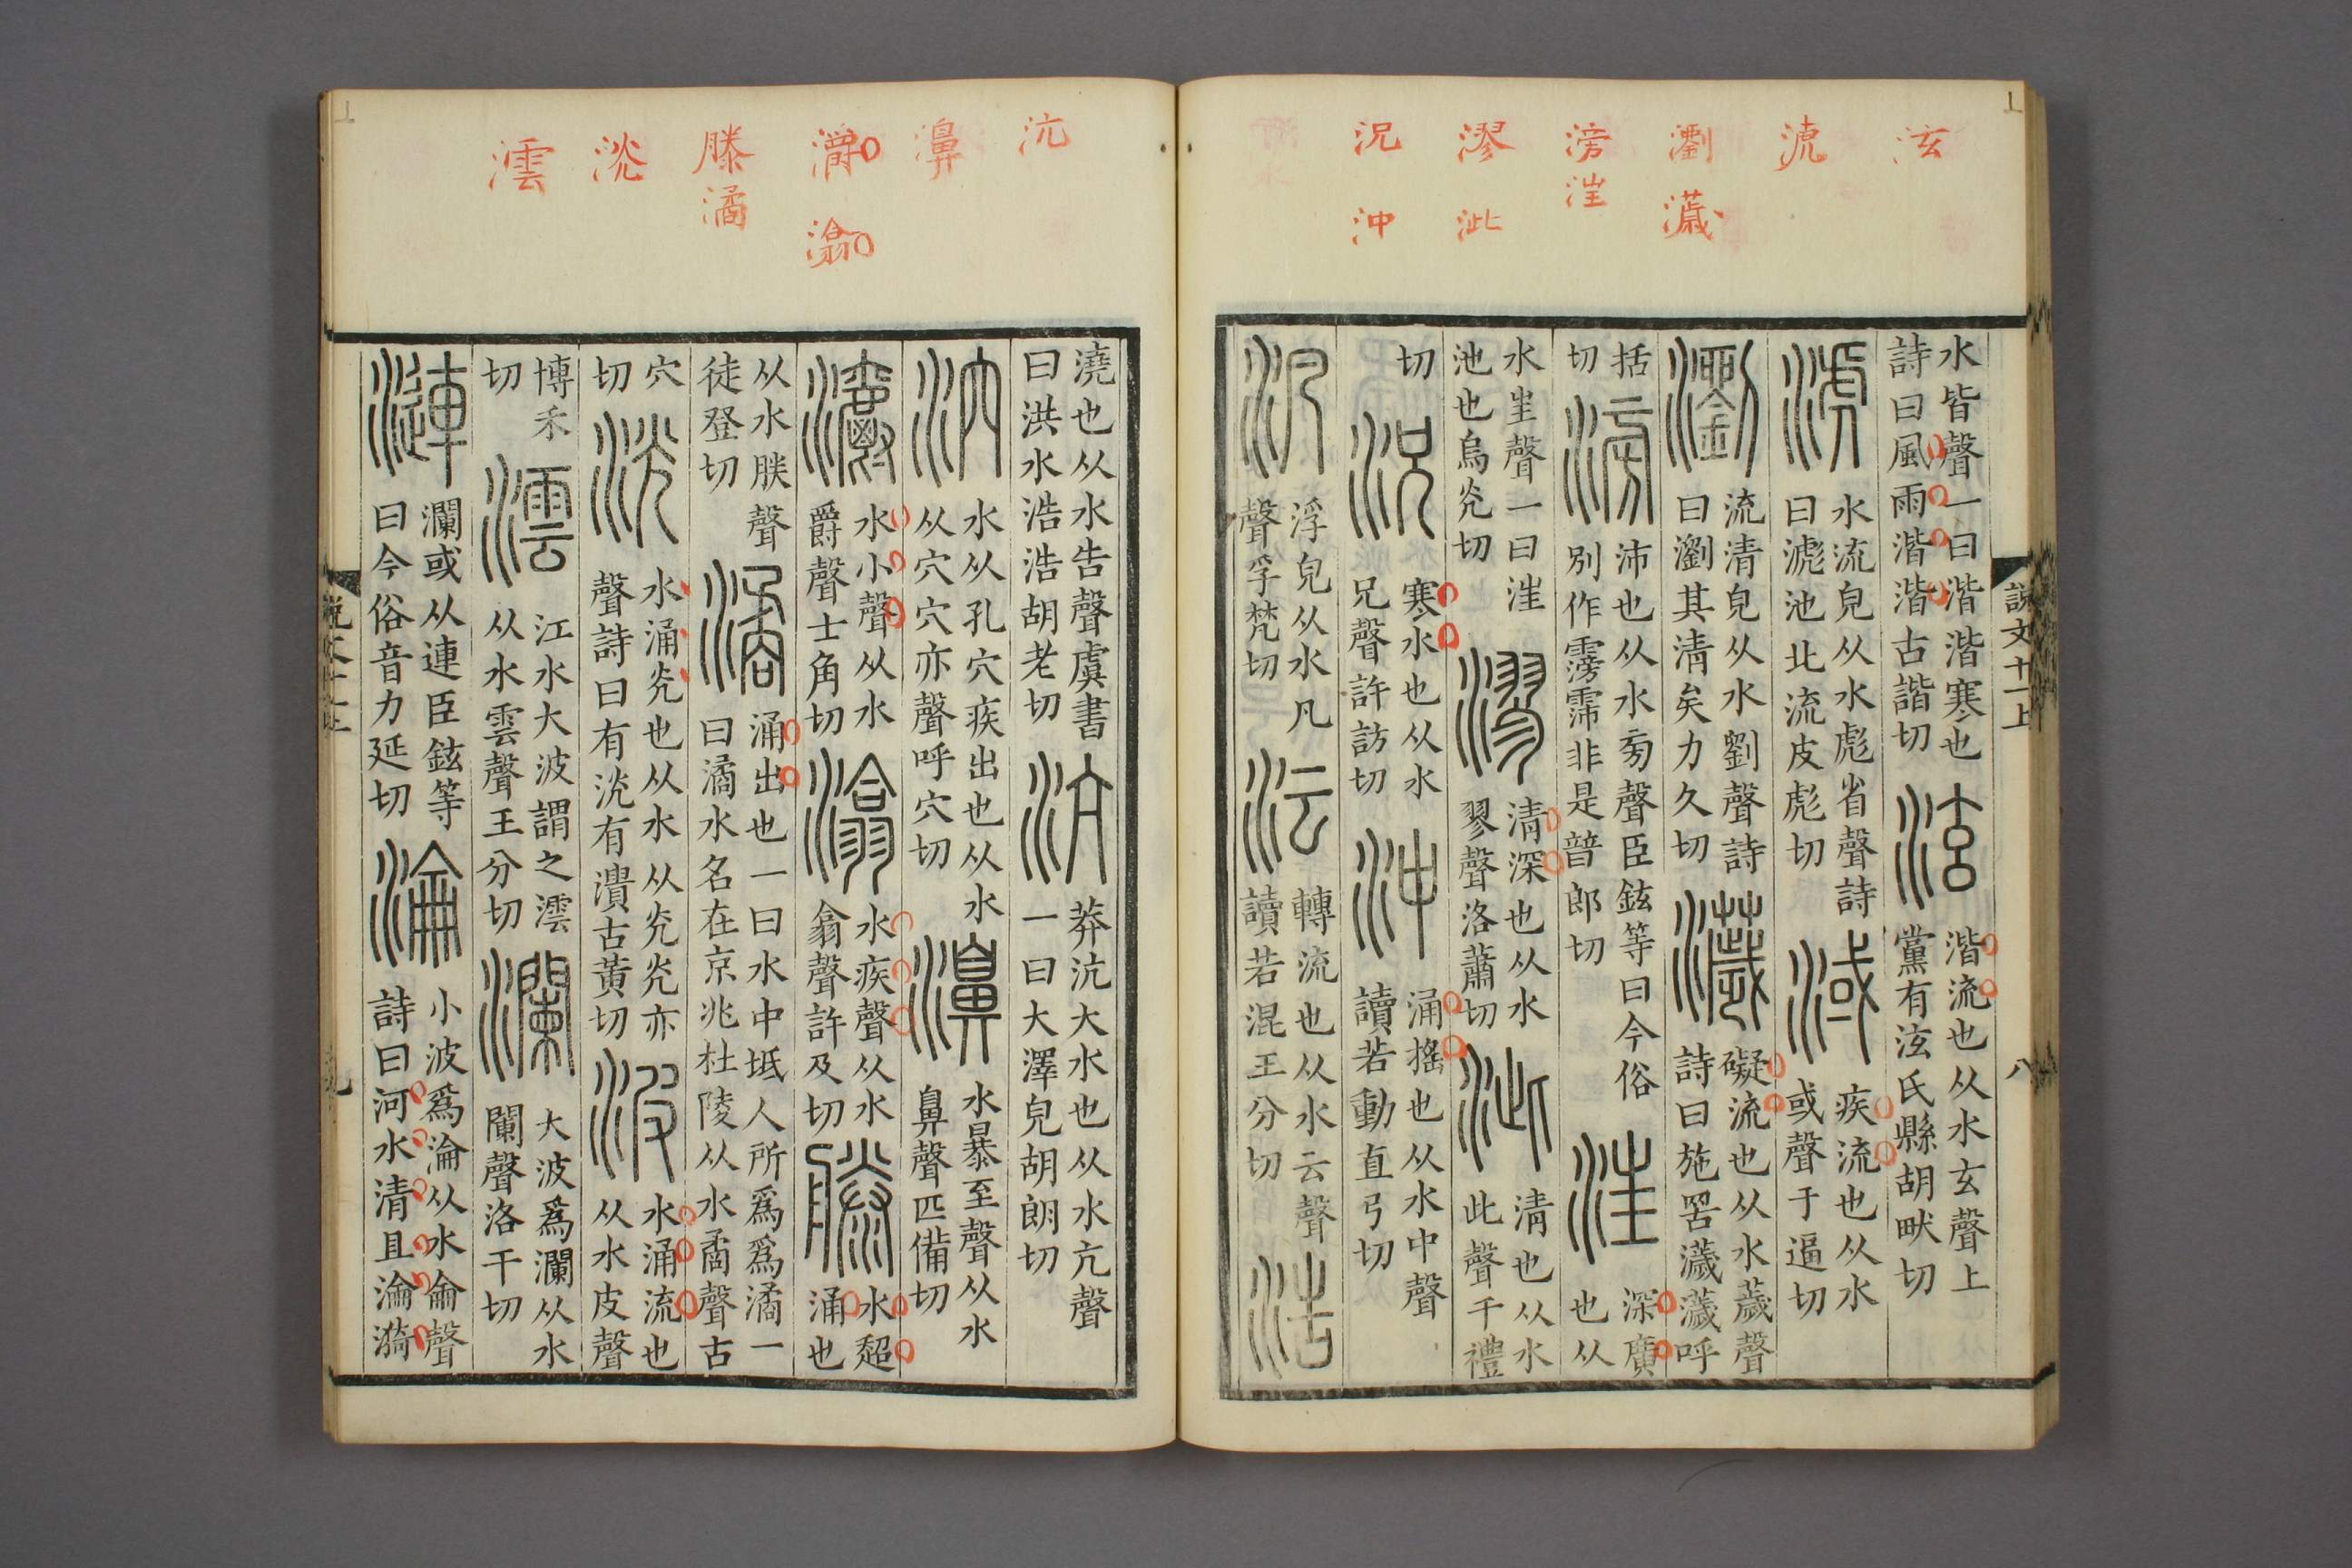 泫
淲
瀏
濊
滂
汪
漻
泚
況
沖
水皆聲一曰湝湝寒也
詩曰風雨湝湝古諧切
泫
湝流也从水玄聲上
黨有泫氏縣胡畎切
淲
水流皃从水彪省聲詩
曰淲池北流皮彪切
淢
疾流也从水
或聲于逼切
瀏
流清皃从水劉聲詩
曰瀏其清矣力久切
濊
礙流也从水薉聲
詩曰施罟濊濊呼
括
切
滂
沛也从水㫄聲臣鉉等曰今俗
別作霶霈非是普郎切
汪
深廣
也从
水㞷聲一曰汪
池也烏光切
漻
清深也从水
翏聲洛蕭切
泚
清也从水
此聲千禮
切
況
寒水也从水
兄聲許訪切
沖
涌搖也从水中聲
讀若動直弓切
汎
浮皃从水凡
聲孚梵切
沄
轉流也从水云聲
讀若混王分切
浩
說文十一上
八
沆
濞
灂
潝
滕
潏
洸
澐
澆也从水告聲虞書
曰洪水浩浩胡老切
沆
莽沆大水也从水亢聲
一曰大澤皃胡朗切
泬
水从孔穴疾出也从水
从穴穴亦聲呼穴切
濞
水暴至聲从水
鼻聲匹備切
灂
水小聲从水
爵聲士角切
潝
水疾聲从水
翕聲許及切
滕
水超
涌也
从水朕聲
徒登切
潏
涌出也一曰水中坻人所爲爲潏一
曰潏水名在京兆杜陵从水矞聲古
穴
切
洸
水涌光也从水从光光亦
聲詩曰有洸有潰古黃切
波
水涌流也
从水皮聲
博禾
切
澐
江水大波謂之澐
从水雲聲王分切
瀾
大波爲瀾从水
闌聲洛干切
漣
瀾或从連臣鉉等
曰今俗音力延切
淪
小波爲淪从水侖聲
詩曰河水清且淪漪